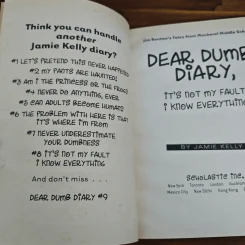 Think you can handle
another
Jamie Kelly diary?
#1 LET'S PRETEND THIS NEVER HAPPENED
#2 MY PANTS ARE HAUNTED!
#3 AM I THE PRINCESS OR THE FROG?
#4 NEVER DO ANYTHING, EVER
#5 CAN ADULTS BECOME HUMAN?
#6 THE PROBLEM WITH HERE IS THAT
IT'S WHERE I'M FROM
#7 NEVER UNDERESTIMATE
YOUR DUMBNESS
#8 IT'S NOT MY FAULT
I KNOW EVERYTHING
And don't miss . . .
DEAR DUMB DIARY #9
Jim Benton's Tales from Mackerel Middle
DEAR DUMB
DIARY,
IT'S NOT MY FAULT
I KNOW EVERYTHING
BY JAMIE KELLY
SCHOLASTIC INC.
New York Toronto London
Mexico City New Delhi Hong Kong